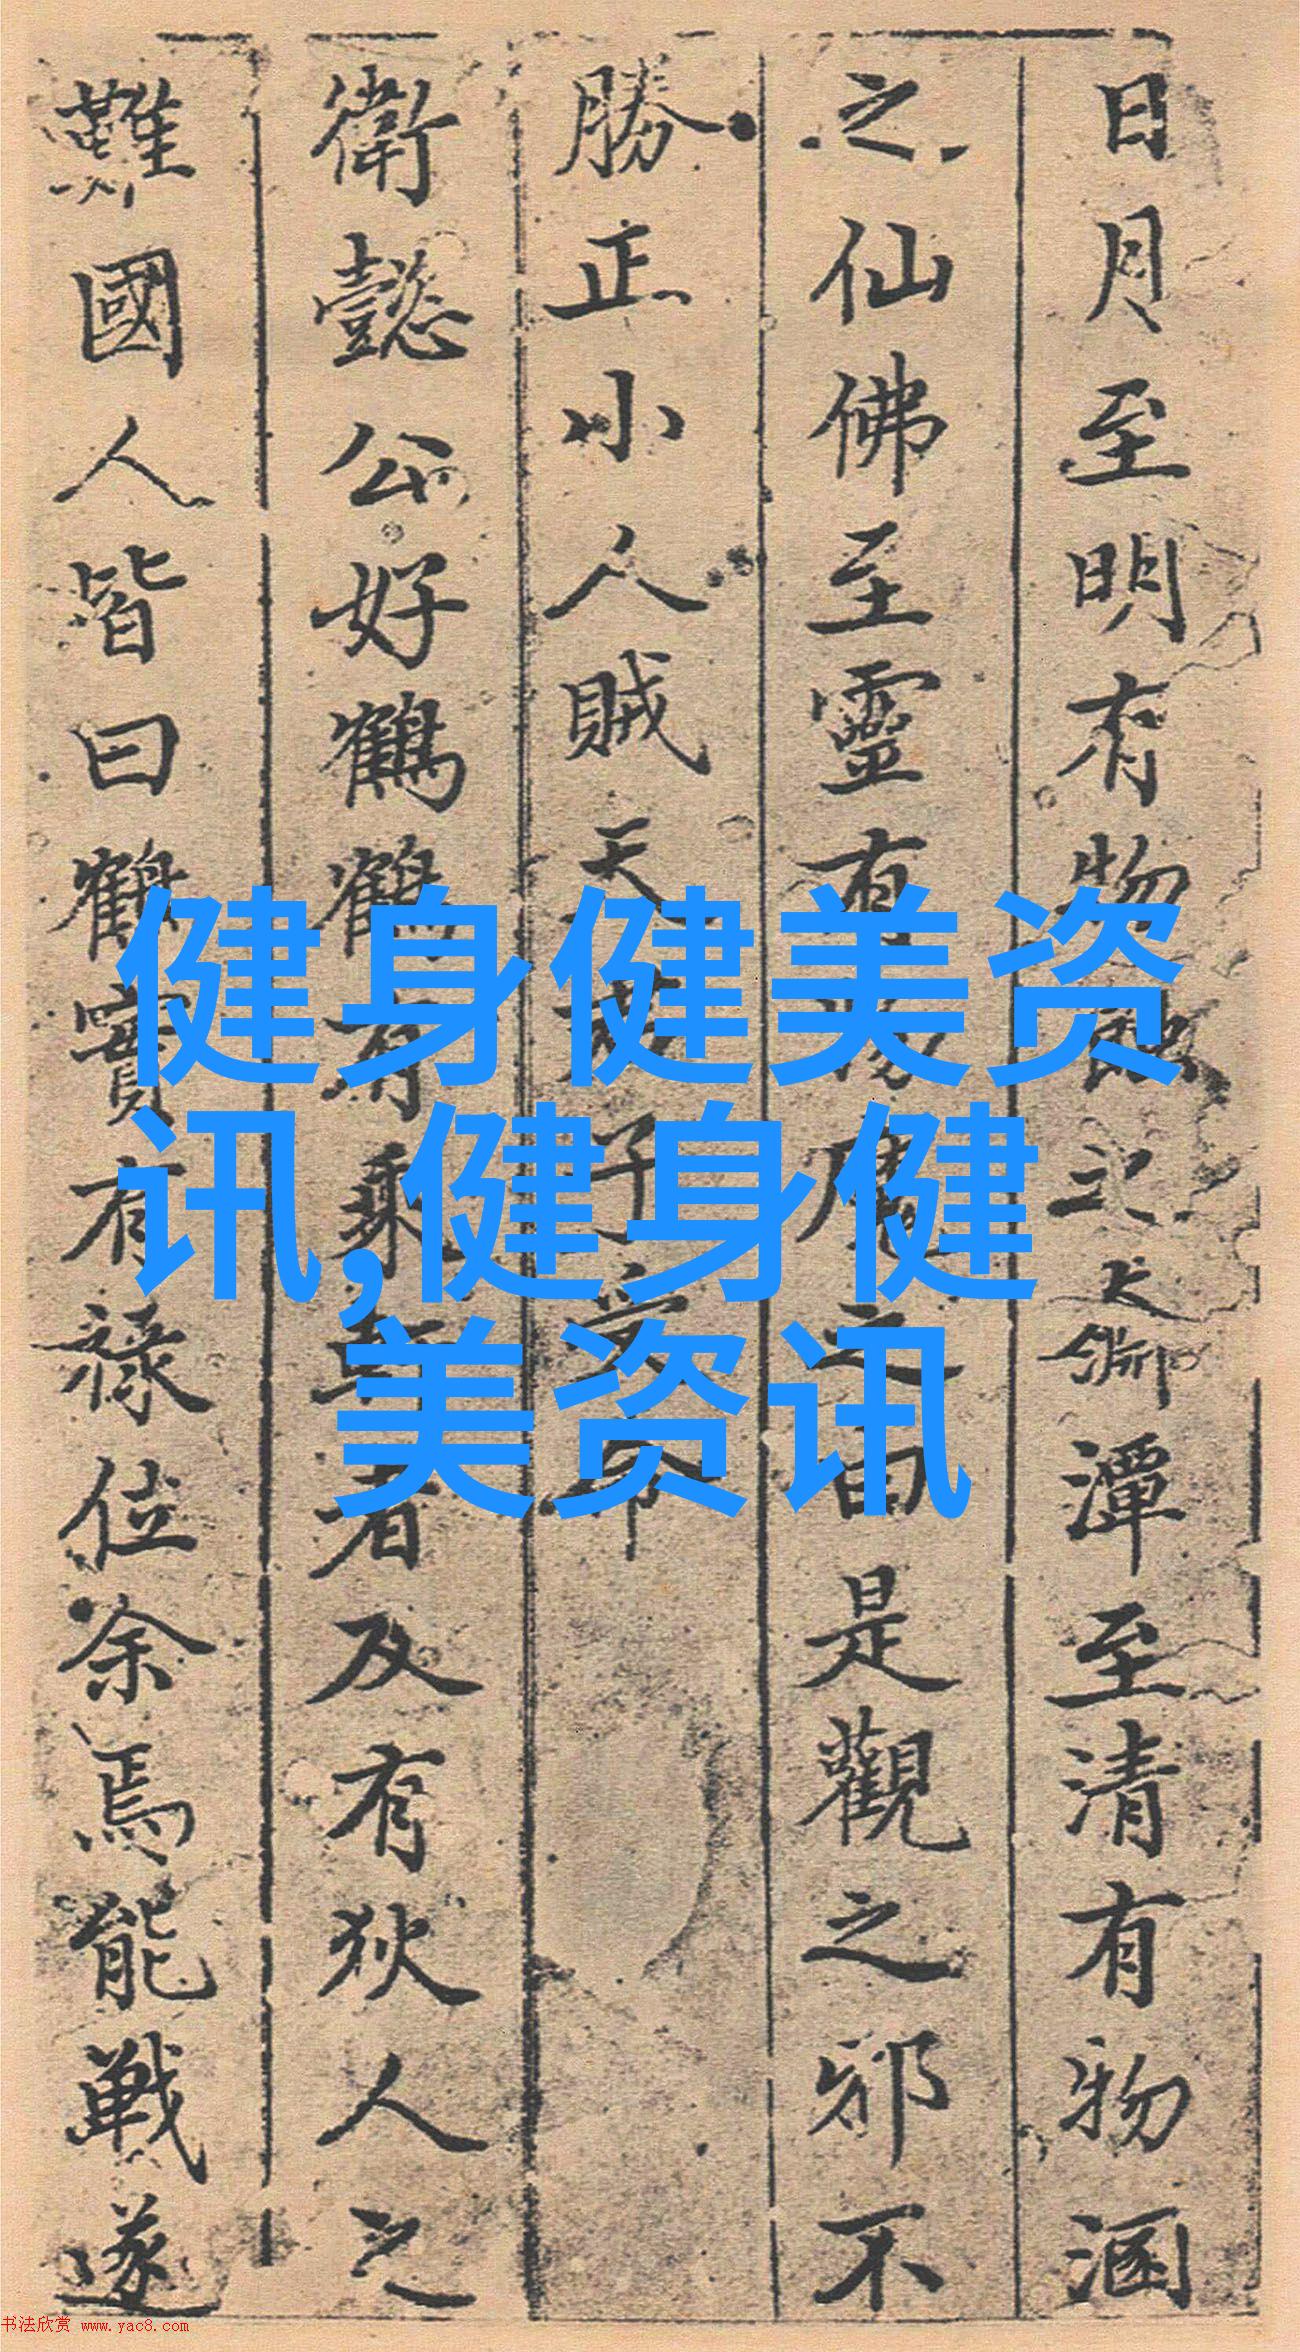 日月至明有物蝕之大淵潭至清有物涵
之仙佛至靈有物魔之由是觀之邪不
勝正小人賊天君子受命
衛懿公好鶴鶴有乘軒者及有狄人之
難國人皆曰鶴實有祿位余焉能戰遂
健身健美资
讯,健身健
美资讯
书法欣赏 www.yac8.com